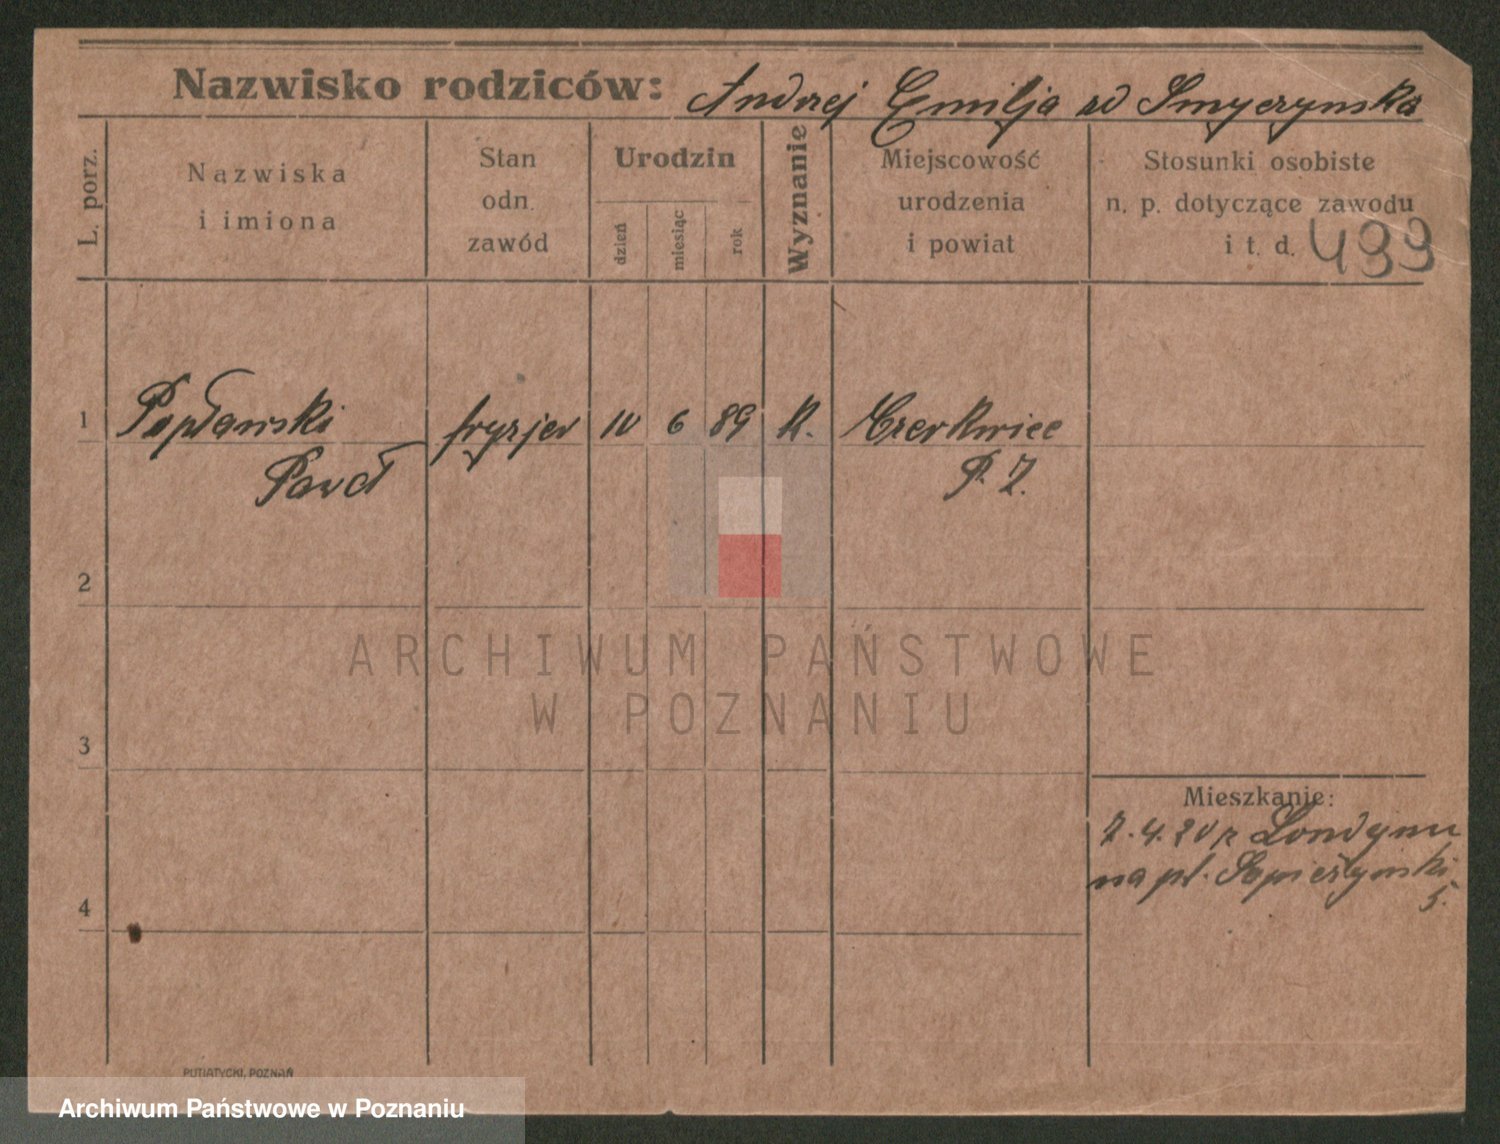 Nazwisko rodziców: Andrzej Emilja zd Smyczynska
L. porz.
Nazwiska
i imiona
Stan
odn.
zawód
Urodzin
dzień
miesiąc
rok
Wyznanie
Miejscowość
urodzenia
i powiat
Stosunki osobiste
n. p. dotyczące zawodu
i t. d. 499
1 Popławski fryzjer 10 6 89 K. Czerkwice
Paweł P. Z.
2
3
4
Mieszkanie:
7.4.20 z Londynu
na pl. Sapieżyński
5.
PUTIATYCKI, POZNAŃ
ARCHIWUM PAŃSTWOWE
W POZNANIU
Archiwum Państwowe w Poznaniu